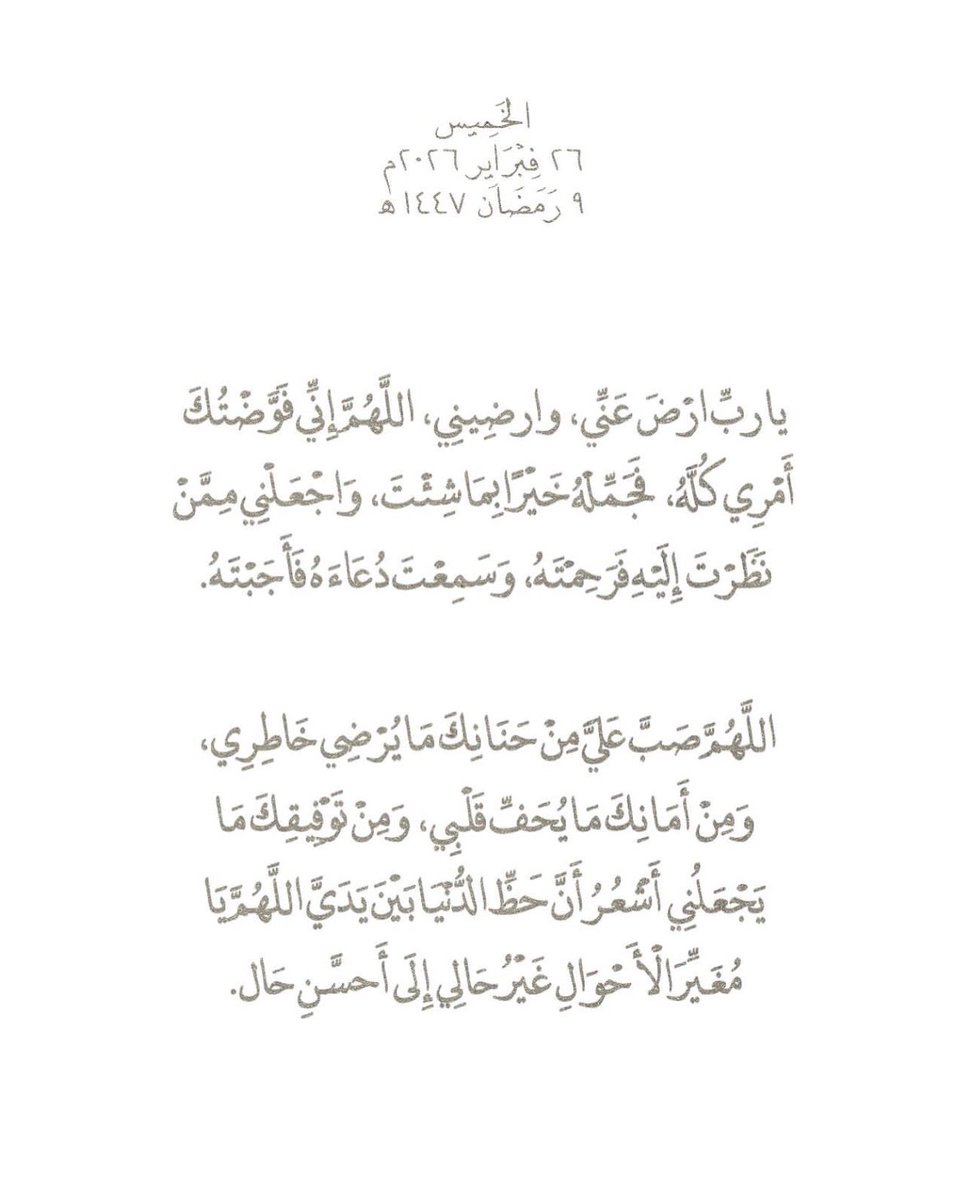 الخَمِيس
٢٦ فِبْرَاير ٢٠٢٦م
٩ رَمَضَان ١٤٤٧ه
يا ربِّ ارْضَ عَنِّي، وارضِيني، اللَّهُمَّ إِنِّي فَوَّضْتُكَ
أَمْرِي كُلَّهُ، فَجَمِّلْهُ خَيْرًا بِمَا شِئْتَ، وَاجْعَلْنِي مِمَّنْ
نَظَرْتَ إِلَيْهِ فَرَحِمْتَهُ، وَسَمِعْتَ دُعَاءَهُ فَأَجَبْتَهُ.
اللَّهُمَّ صَبَّ عَلَيَّ مِنْ حَنَانِكَ مَا يُرْضِي خَاطِرِي،
وَمِنْ أَمَانِكَ مَا يُحَفِّ قَلْبِي، وَمِنْ تَوْفِيقِكَ مَا
يَجْعَلُنِي أَشْعُرُ أَنَّ حَظِّ الدُّنْيَا بَيْنَ يَدَيَّ اللَّهُمَّ يَا
مُغَيِّرَ الْأَحْوَالِ غَيْرُ حَالِي إِلَى أَحسَّنِ حَال.